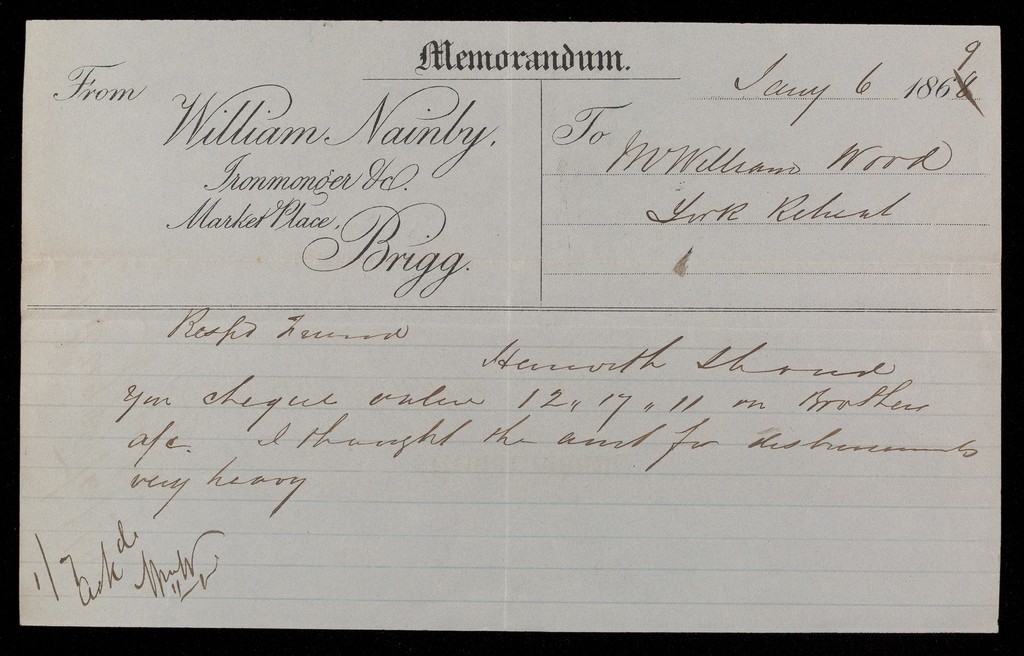 Memorandum.
From
William Nainby,
Ironmonger &c.
Market Place,
Brigg.
Jany 6 1869
To
Mr William Wood
York Retreat
Respd Friend
Herewith I hand
you cheque value 12 " 17 " 11 on Brothers
a/c. I thought the amt for disbursements
very heavy
1/7 Ackd